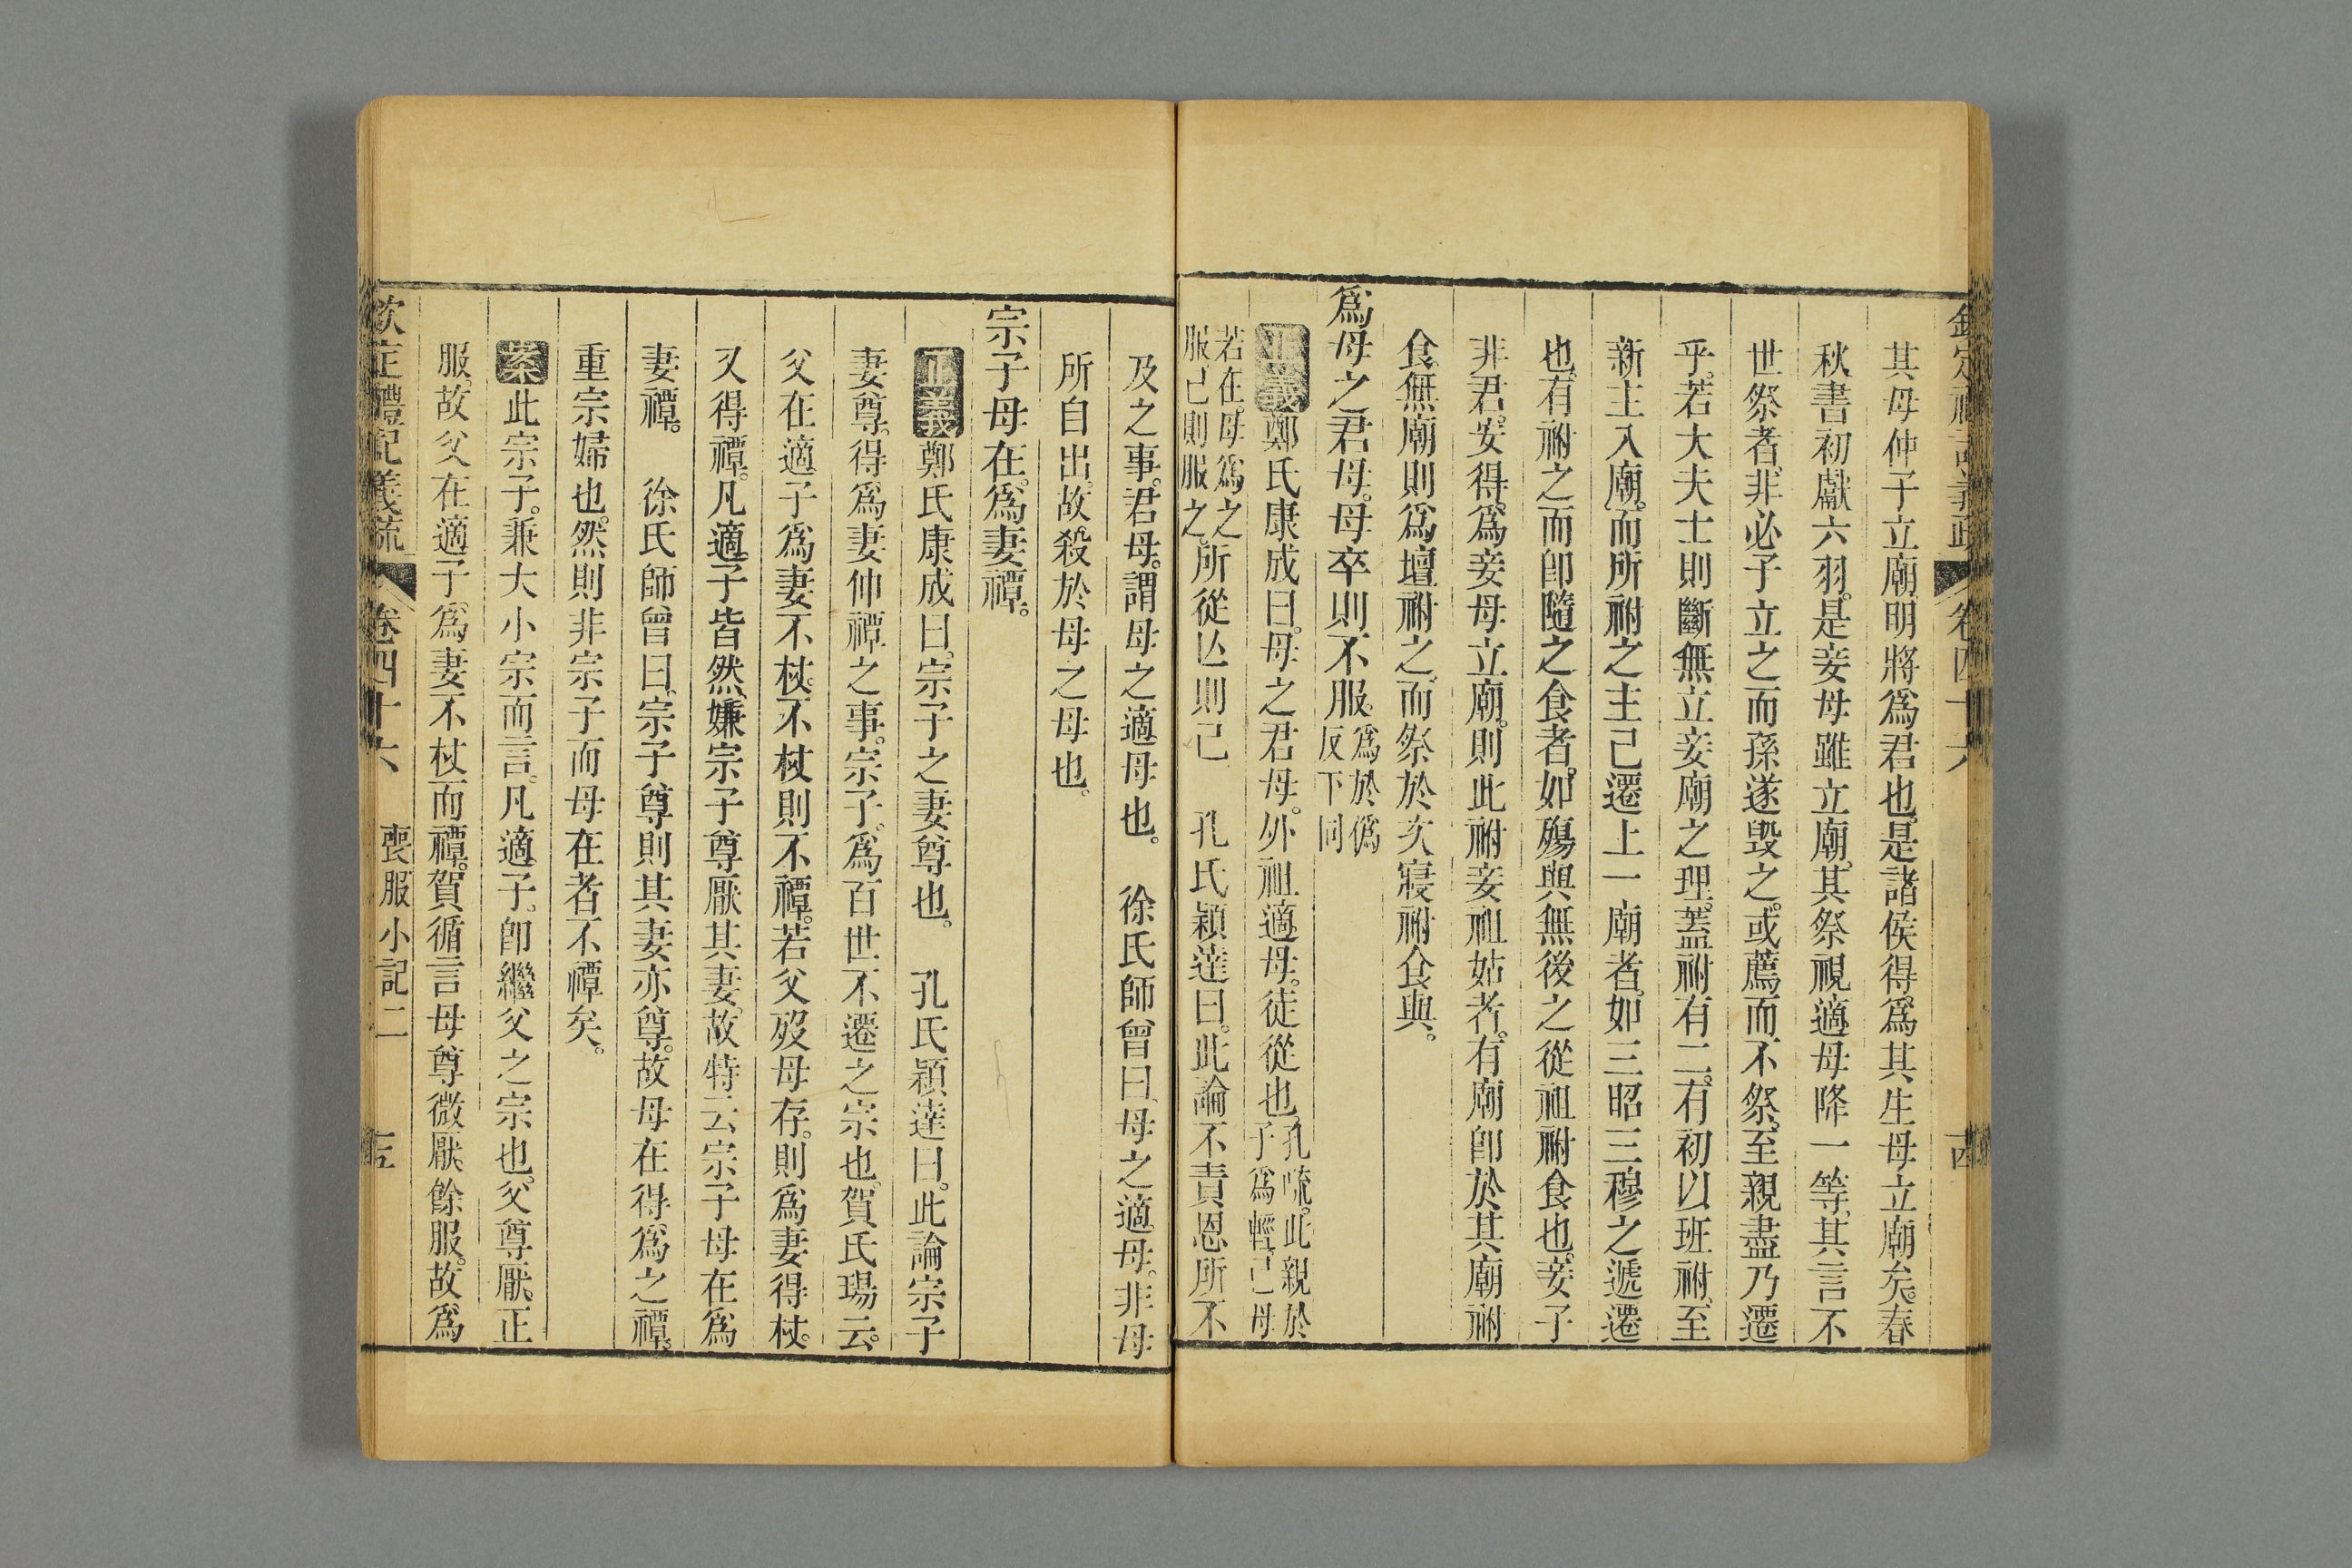 欽定禮記義疏 卷四十六 十四
其母仲子立廟明將爲君也是諸侯得爲其生母立廟矣春
秋書初獻六羽是妾母雖立廟其祭視適母降一等其言不
世祭者非必子立之而孫遂毁之或薦而不祭至親盡乃遷
乎若大夫士則斷無立妾廟之理蓋祔有二有初以班祔至
新主入廟而所祔之主已遷上一廟者如三昭三穆之遞遷
也有祔之而卽隨之食者如殤與無後之從祖祔食也妾子
非君安得爲妾母立廟則此祔妾祖姑者有廟卽於其廟祔
食無廟則爲壇祔之而祭於次寢祔食與
爲母之君母母卒則不服爲於僞
反下同
正義鄭氏康成曰母之君母外祖適母徒從也孔疏此親於
子爲輕己母
若在母爲之
服己則服之所從亾則已 孔氏穎達曰此論不責恩所不
及之事君母謂母之適母也 徐氏師曾曰母之適母非母
所自出故殺於母之母也
宗子母在爲妻禫
正義鄭氏康成曰宗子之妻尊也 孔氏穎達曰此論宗子
妻尊得爲妻伸禫之事宗子爲百世不遷之宗也賀氏瑒云
父在適子爲妻不杖不杖則不禫若父歿母存則爲妻得杖
又得禫凡適子皆然嫌宗子尊厭其妻故特云宗子母在爲
妻禫 徐氏師曾曰宗子尊則其妻亦尊故母在得爲之禫
重宗婦也然則非宗子而母在者不禫矣
案此宗子兼大小宗而言凡適子卽繼父之宗也父尊厭正
服故父在適子爲妻不杖而禫賀循言母尊微厭餘服故爲
欽定禮記義疏 卷四十六 喪服小記二 十五